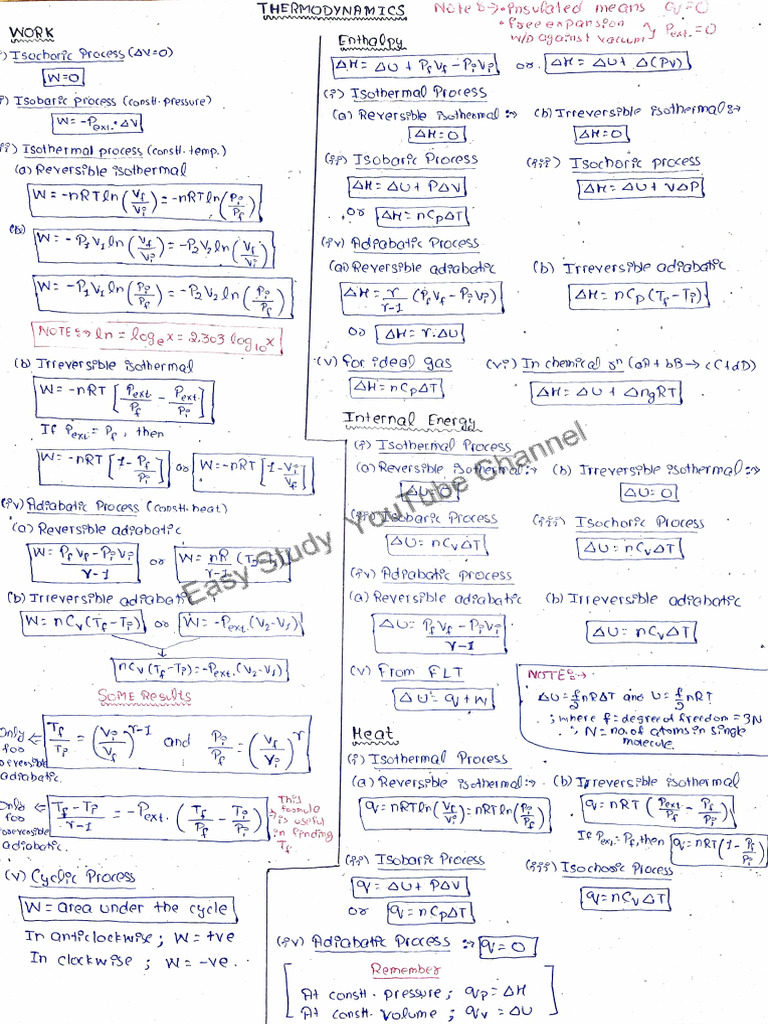 THERMODYNAMICS
Note :→ • insulated means q=0
• free expansion
w/o against vacuum } Pext.=0
WORK
i) Isochoric Process (ΔV=0)
W=0
i) Isobaric process (constt. pressure)
W = -Pext. ΔV
ii) Isothermal process (constt. temp.)
(a) Reversible isothermal
W = -nRT ln(Vf/Vi) = -nRT ln(Pi/Pf)
(b)
W = -P1V1 ln(Vf/Vi) = -P2V2 ln(Vf/Vi)
W = -P1V1 ln(Pi/Pf) = -P2V2 ln(Pi/Pf)
NOTE :→ ln = logex = 2.303 log10x
(b) Irreversible isothermal
W = -nRT [Pext/Pf - Pext/Pi]
If Pext. = Pf, then
W = -nRT [1 - Pf/Pi] or W = -nRT [1 - Vi/Vf]
(iv) Adiabatic Process (constt. heat)
(a) Reversible adiabatic
W = PfVf - PiVi / γ-1 or W = nR/γ-1 (Tf-Ti)
(b) Irreversible adiabatic
W = nCv(Tf-Ti) or W = -Pext.(V2-V1)
nCv(Tf-Ti) = -Pext.(V2-V1)
SOME Results
Only for reversible adiabatic. ← Tf/Ti = (Vi/Vf)^γ-1 and Pi/Pf = (Vf/Vi)^γ
Only for irreversible adiabatic. ← Tf-Ti/γ-1 = -Pext. (Tf/Pf - Ti/Pi) → This formula is useful in finding Tf
(v) Cyclic Process
W = area under the cycle
In anticlockwise ; W = +ve
In clockwise ; W = -ve.
Enthalpy
ΔH = ΔU + PfVf - PiVi or ΔH = ΔU + Δ(PV)
(i) Isothermal Process
(a) Reversible isothermal :→ (b) Irreversible isothermal :→
ΔH = 0 ΔH = 0
(ii) Isobaric Process (iii) Isochoric process
ΔH = ΔU + PΔV ΔH = ΔU + VΔP
or ΔH = nCpΔT
(iv) Adiabatic Process
(a) Reversible adiabatic (b) Irreversible adiabatic
ΔH = γ/γ-1 (PfVf - PiVi) ΔH = nCp(Tf-Ti)
or ΔH = γ.ΔU
(v) for ideal gas (vi) In chemical rn (aA + bB → cC + dD)
ΔH = nCpΔT ΔH = ΔU + ΔngRT
Internal Energy
(i) Isothermal Process
(a) Reversible isothermal :→ (b) Irreversible isothermal :→
ΔU = 0 ΔU = 0
(ii) Isobaric Process (iii) Isochoric Process
ΔU = nCvΔT ΔU = nCvΔT
(iv) Adiabatic process
(a) Reversible adiabatic (b) Irreversible adiabatic
ΔU = PfVf - PiVi / γ-1 ΔU = nCvΔT
(v) From FLT
ΔU = q + w
NOTE :→
ΔU = f/2 nRΔT and U = f/2 nRT
; where f = degree of freedom = 3N
∴ N = no. of atoms in single
molecule.
Heat
(i) Isothermal Process
(a) Reversible isothermal :→ (b) Irreversible isothermal
q = nRT ln(Vf/Vi) = nRT ln(Pi/Pf) q = nRT (Pext/Pf - Pf/Pi)
If Pext. = Pf, then q = nRT (1 - Pf/Pi)
(ii) Isobaric Process (iii) Isochoric Process
q = ΔU + PΔV q = nCvΔT
or q = nCpΔT
(iv) Adiabatic Process :→ q = 0
Remember
At constt. pressure ; qp = ΔH
At constt. volume ; qv = ΔU
Easy Study YouTube Channel